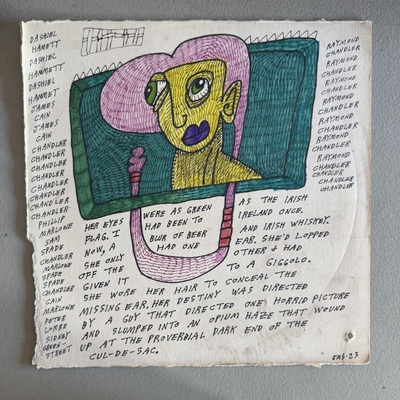 DASHIEL
HAMETT
DASHIEL
HAMMETT
DASHIEL
HAMMET
JAMES
CAIN
JAMES
CAIN
CHANDLER
CHANDLER
CHANDLER
CHANDLER
CHANDLER
CHANDLER
CHANDLER
PHILLIP
MARLOWE
SAM
SPADE
CHANDLER
MARLOWE
SPADE
SPADE
CHANDLER
CAIN
MARLOWE
PETER
LORRE
SIDNEY
GREEN
STREET
RAYMOND
CHANDLER
RAYMOND
CHANDLER
RAYMOND
CHANDLER
RAYMOND
CHANDLER
RAYMOND
CHANDLER
RAYMOND
CHANDLER
RAYMOND
CHANDLER
CHANDLER
CHANDLER
CHANDLER
HER EYES WERE AS GREEN AS THE IRISH
FLAG. I HAD BEEN TO IRELAND ONCE.
NOW, A BLUR OF BEER AND IRISH WHISKEY.
SHE ONLY HAD ONE EAR. SHE'D LOPPED
OFF THE OTHER & HAD
GIVEN IT TO A GIGGOLO.
SHE WORE HER HAIR TO CONCEAL THE
MISSING EAR. HER DESTINY WAS DIRECTED
BY A GUY THAT DIRECTED ONE HORRID PICTURE
AND SLUMPED INTO AN OPIUM HAZE THAT WOUND
UP AT THE PROVERBIAL DARK END OF THE
CUL-DE-SAC.